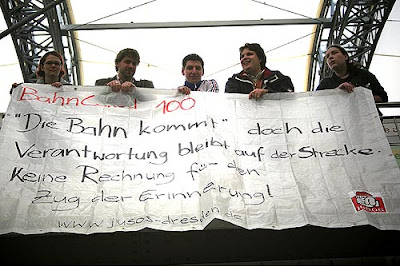 BahnCard 100
"Die Bahn kommt" doch die
Verantwortung bleibt auf der Strecke.
Keine Rechnung für den
Zug der Erinnerung!
www.jusos-dresden.de
JUSOS